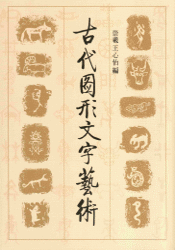 王心怡編
古代圖形文字藝術